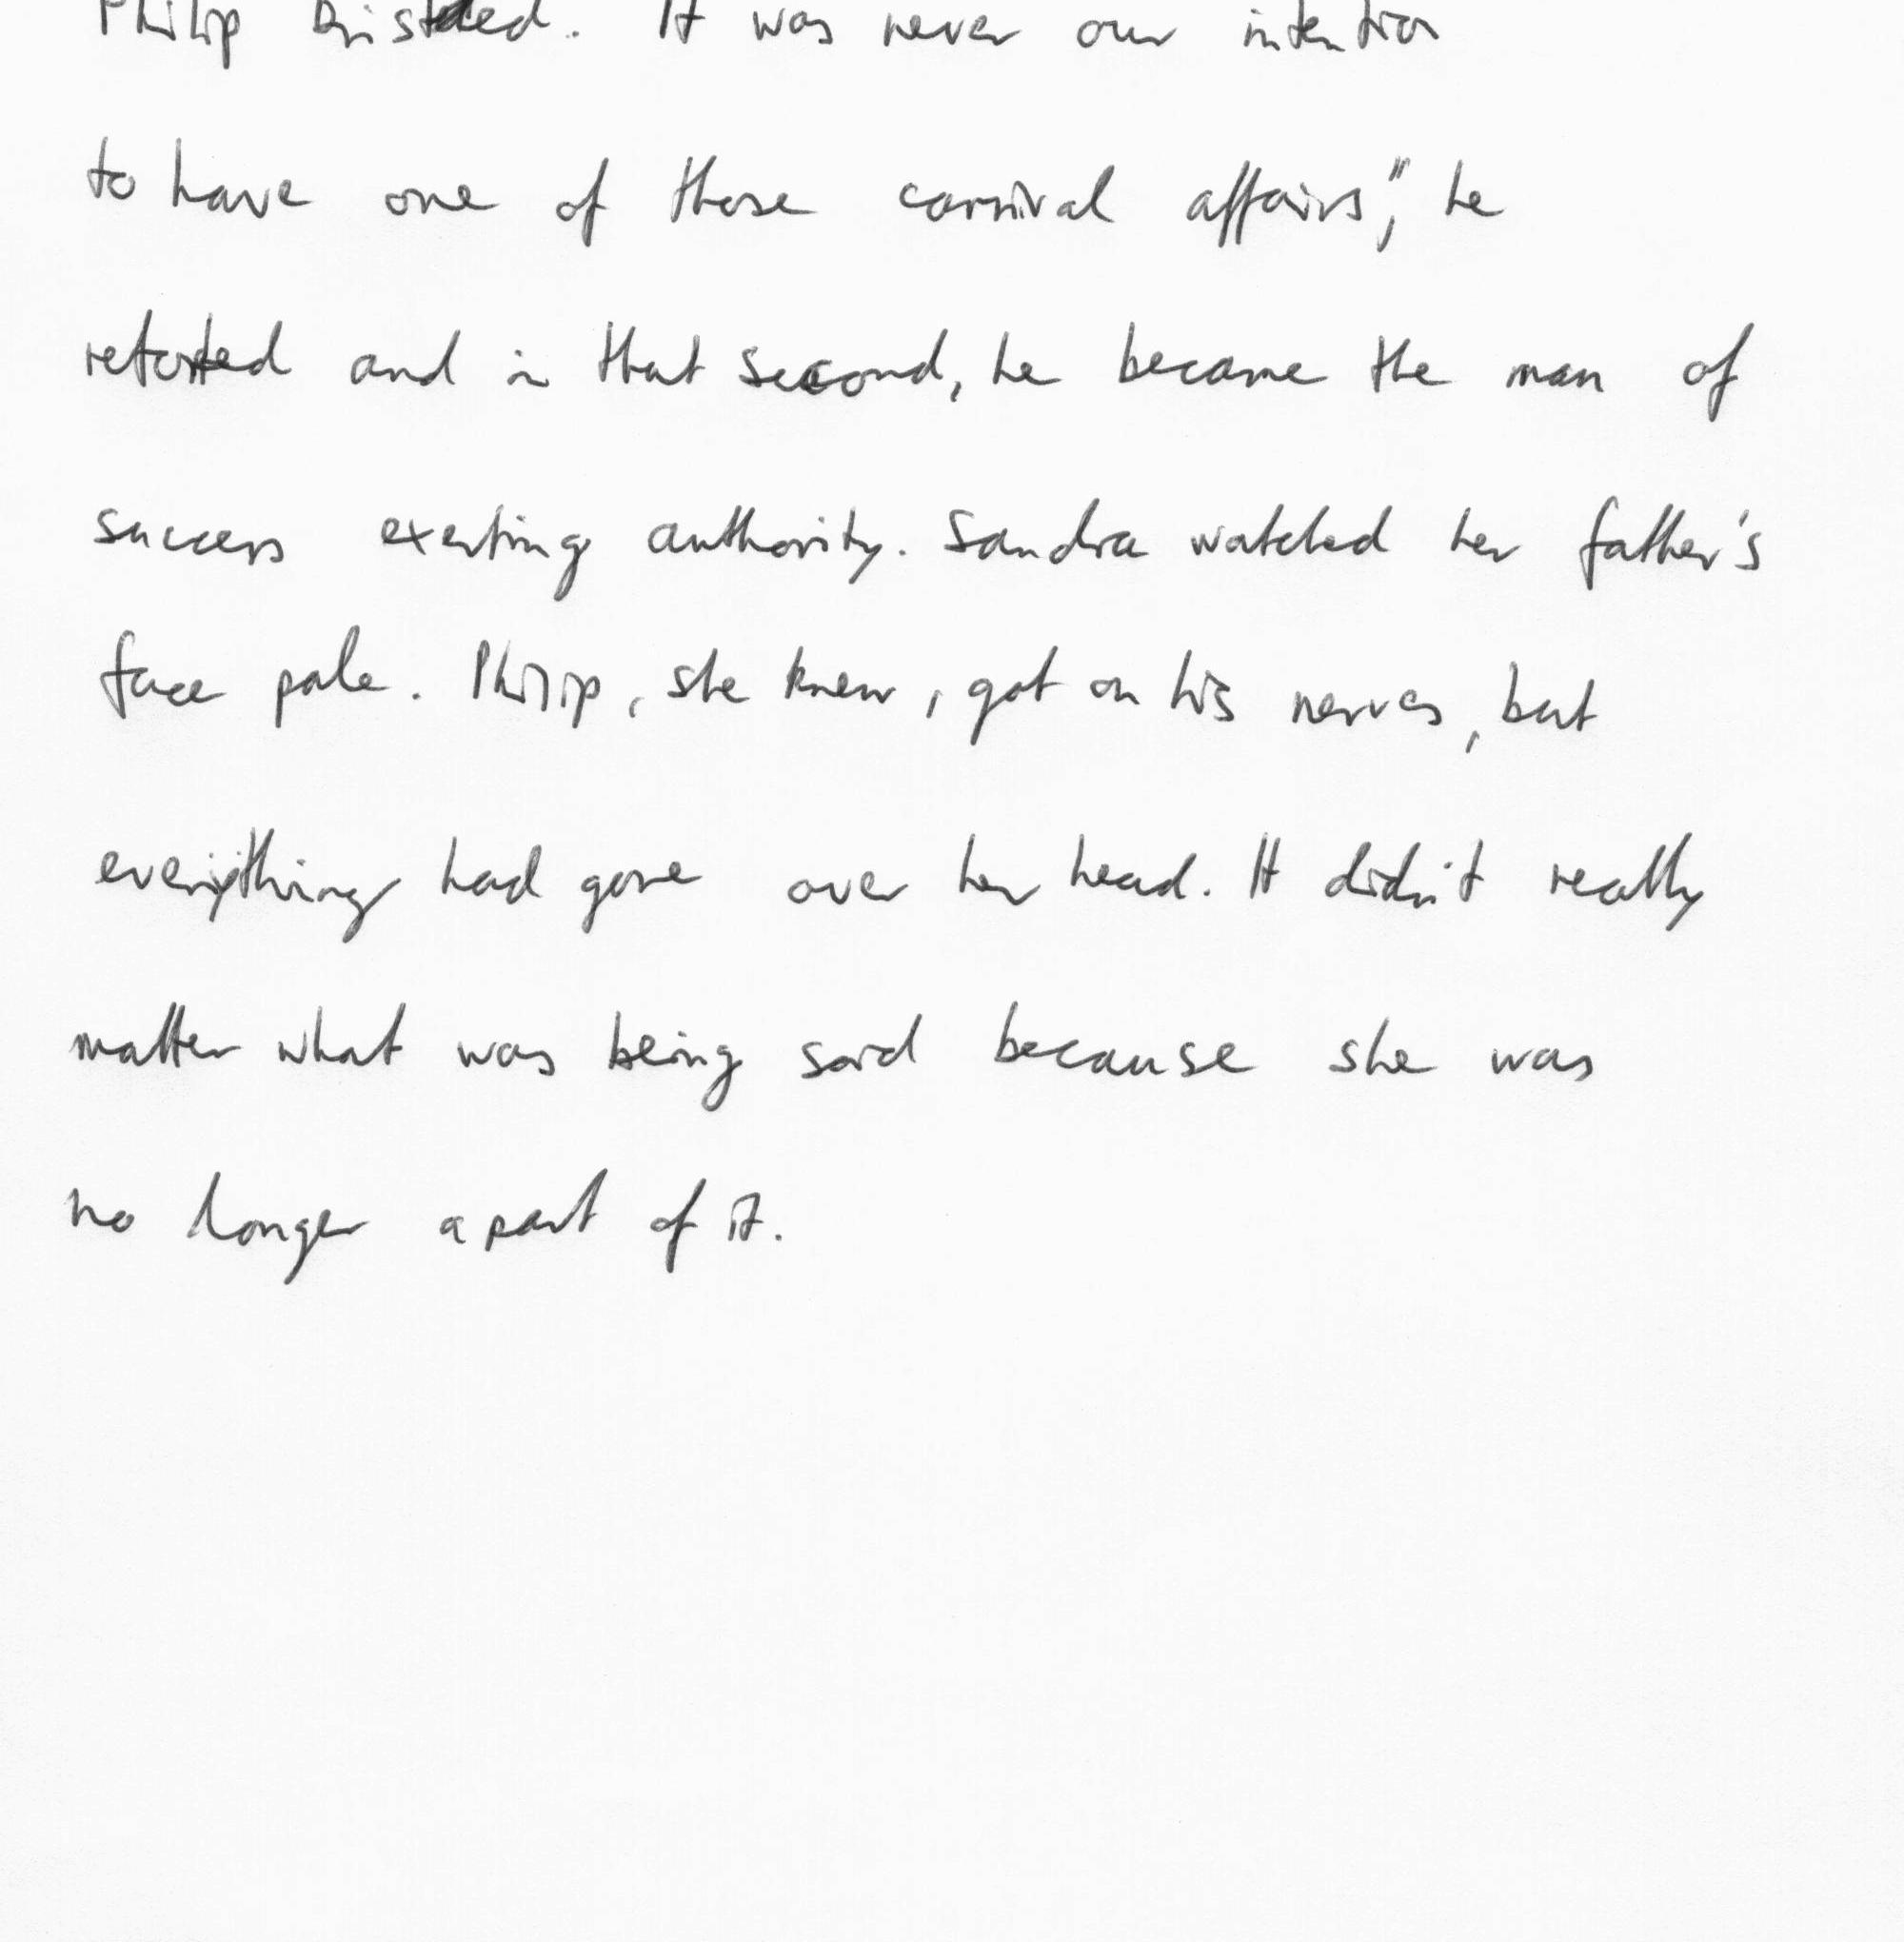 Philip bristled. It was never our intention
to have one of those carnival affairs", he
retorted and in that second, he became the man of
success exerting authority. Sandra watched her father's
face pale. Philip, she knew, got on his nerves, but
everything had gone over her head. It didn't really
matter what was being said because she was
no longer a part of it.